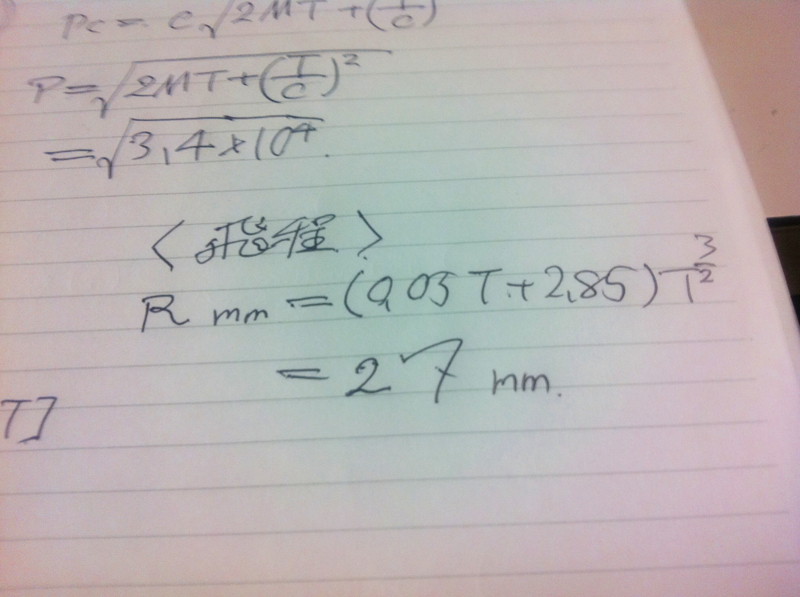 Pc = c√2MT+(T/c)
P=√2MT+(T/C)²
=√3,4×10⁴.
〈飛程〉
R mm = (0,05T+2,85)T^3/2
= 27 mm.
T]